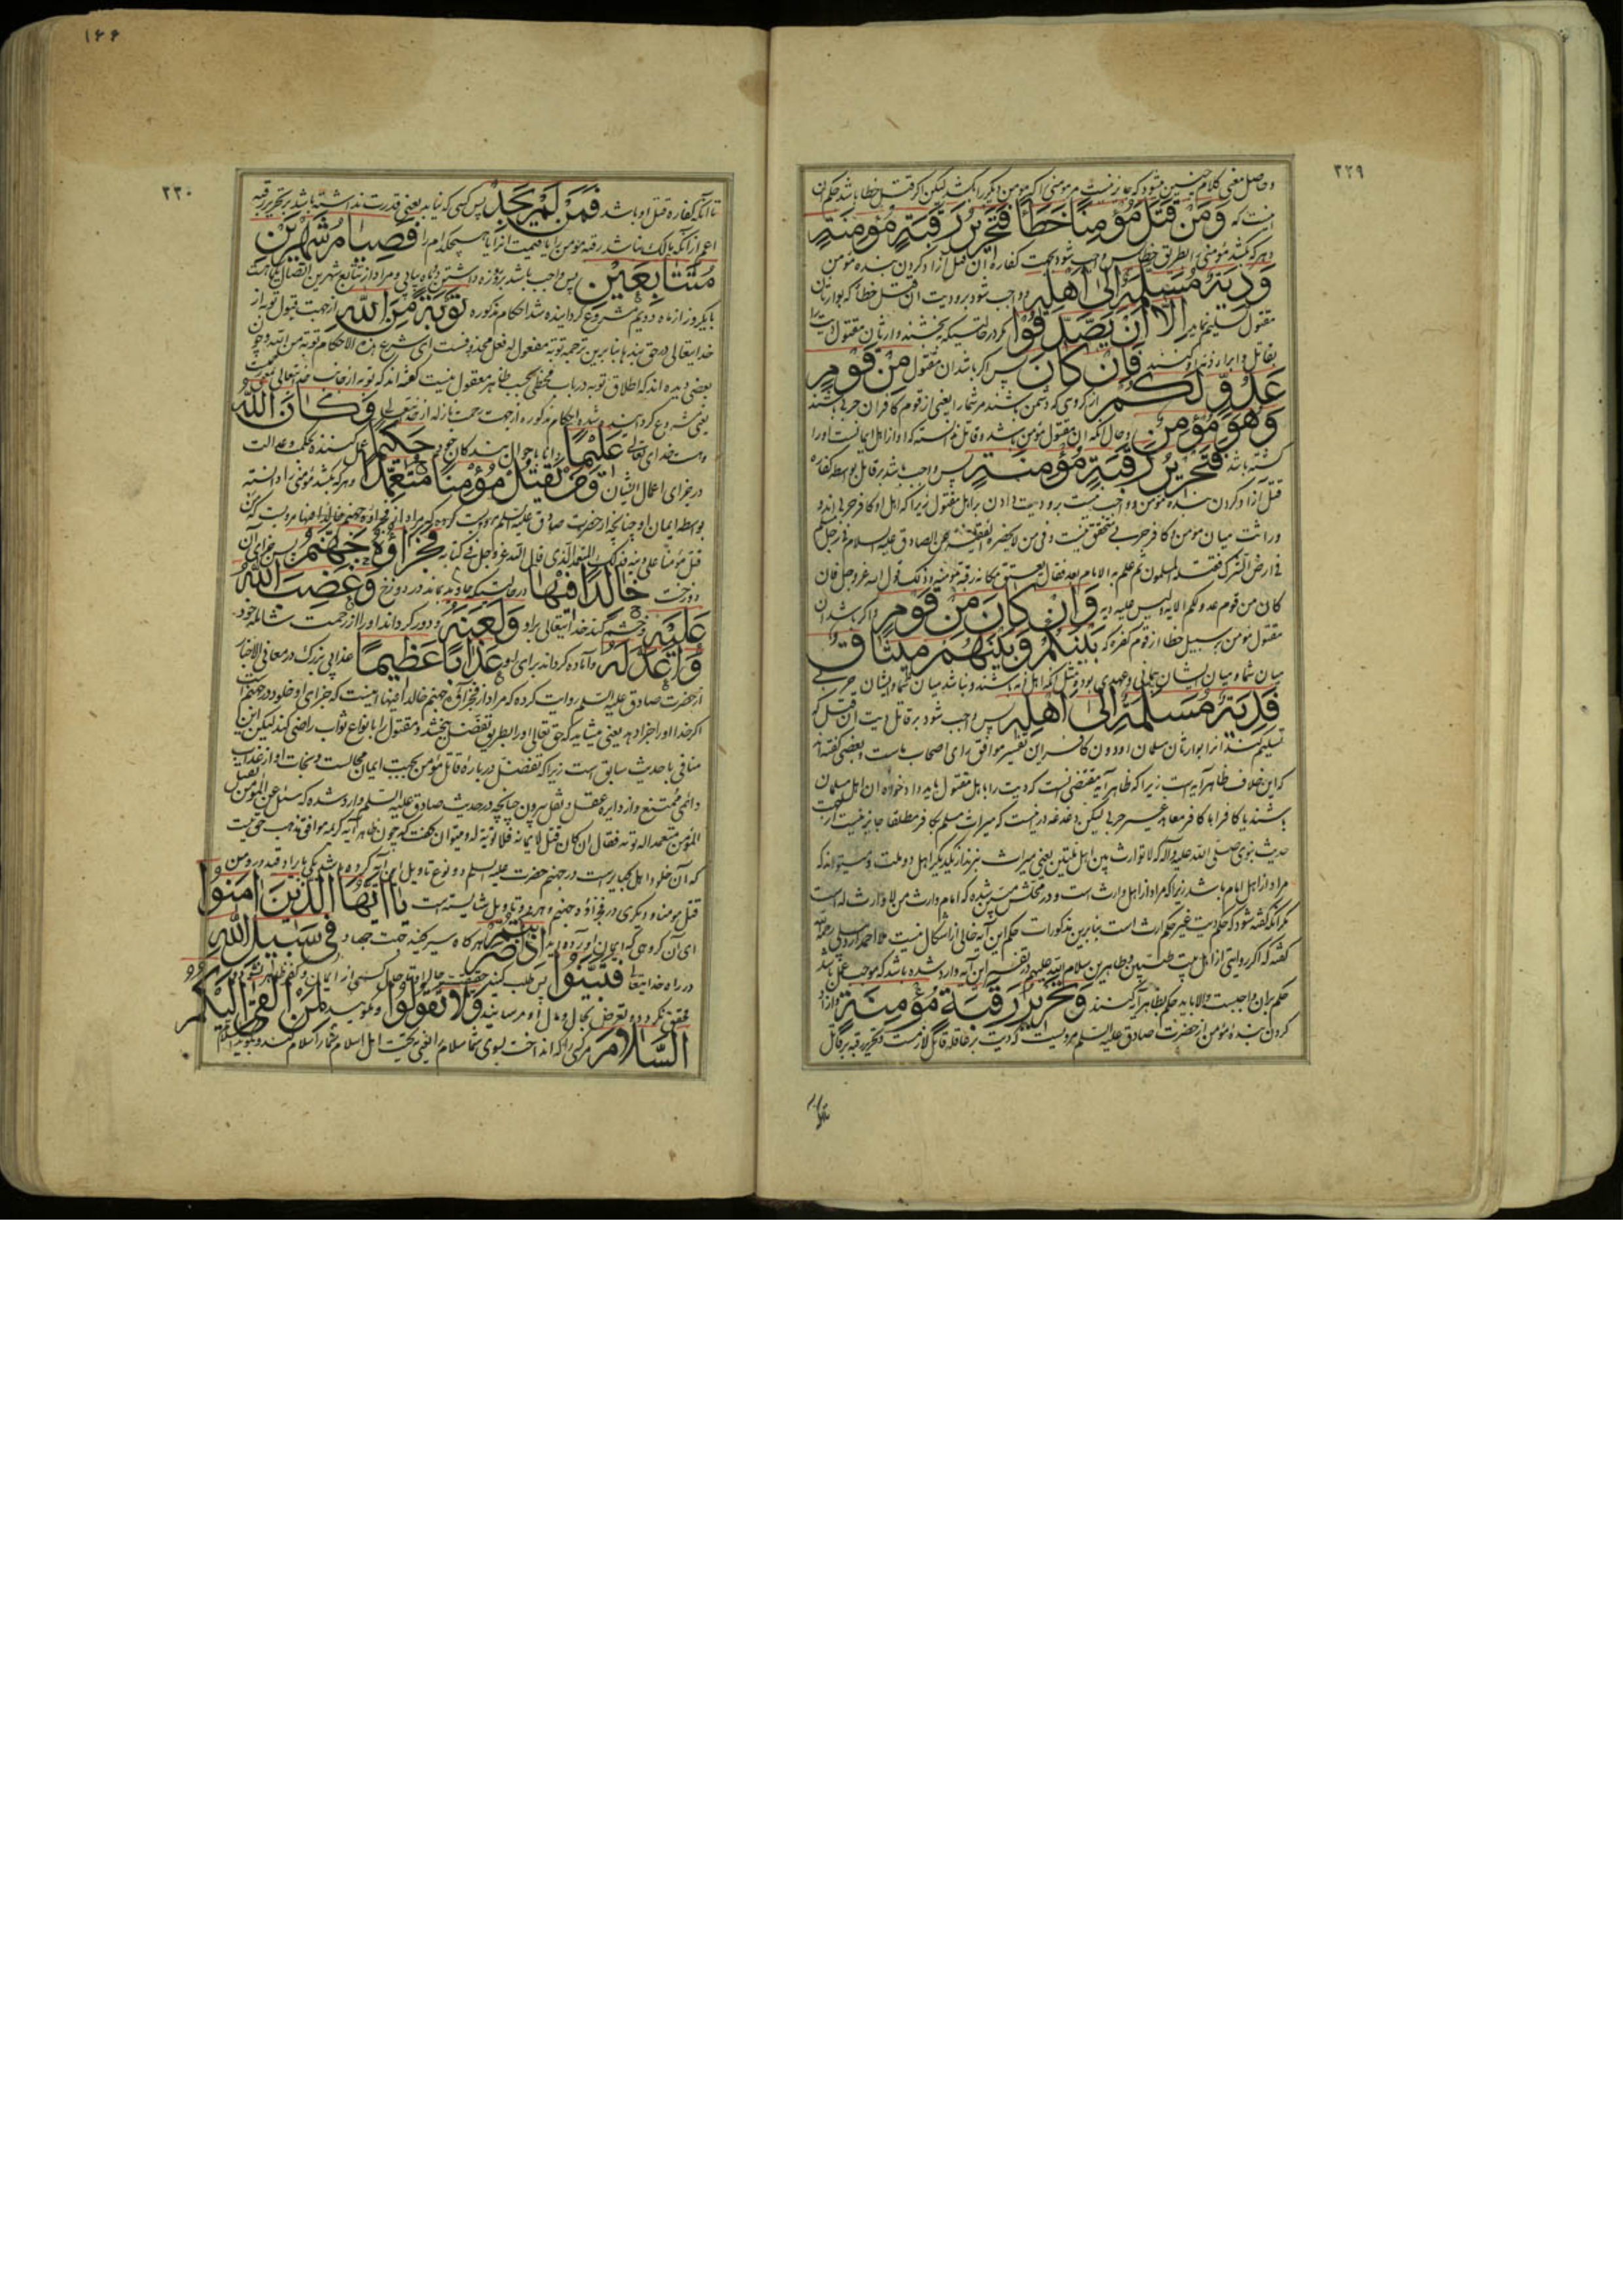 ۲۲۹
وحاصل معنی کلام چنین میشود که جایز نیست مر مومنی را که مومن دیگر را بکشد لیکن اگر قتل خطا باشد حکم ان
اینست که وَمَنْ قَتَلَ مُؤْمِنًا خَطَأً فَتَحْرِيرُ رَقَبَةٍ مُؤْمِنَةٍ
و هرکه بکشد مؤمنی را بطریق خطا پس واجب شود بجهت کفاره ان قتل ازاد کردن بنده مومن
وَدِيَةٌ مُسَلَّمَةٌ إِلَىٰ أَهْلِهِ و واجب شود برو دیت ان قتل خطا که بوارثان
مقتول تسلیم نماید إِلَّا أَنْ يَصَّدَّقُوا مگر در حالتیکه ببخشند وارثان مقتول دیت را
بقاتل و ابراء ذمه او کنند فَإِنْ كَانَ پس اگر باشد ان مقتول مِنْ قَوْمٍ
عَدُوٍّ لَكُمْ از گروهی که دشمن باشند مر شما را یعنی از قوم کافران حربی باشند
وَهُوَ مُؤْمِنٌ و حال انکه ان مقتول مؤمن باشد و قاتل ندانسته که او از اهل ایمانست او را
کشته باشد فَتَحْرِيرُ رَقَبَةٍ مُؤْمِنَةٍ پس واجب باشد بر قاتل بواسطه کفاره
قتل ازاد کردن بنده مؤمن و واجب نیست برو دیت دادن بر اهل مقتول زیرا که اهل او کافر حربی اند و
وراثت میان مؤمن و کافر حربی متحقق نیست و فی من لا یحضره الفقیه عن الصادق علیه السلام فی رجل مسلم
فی ارض الشرک فقتله المسلمون ثم علم به الامام بعد فقال یعتق مکانه رقبة مؤمنة و ذلک قول الله عز و جل فان
کان من قوم عدو لکم الایه و لیس علیه دیه وَإِنْ كَانَ مِنْ قَوْمٍ و اگر باشد ان
مقتول مؤمن بر سبیل خطا از قوم کفره که بَيْنَكُمْ وَبَيْنَهُمْ مِيثَاقٌ
میان شما و میان ایشان پیمانی و عهدی بود و مثل انکه اهل ذمه باشند و نباشد میان شما و ایشان حربی
فَدِيَةٌ مُسَلَّمَةٌ إِلَىٰ أَهْلِهِ پس واجب شود بر قاتل دیت ان قتل که
تسلیم کنند انرا بوارثان مسلمان او دون کافر این تفسیر موافق رای اصحاب ماست و بعضی گفته اند
که این خلاف ظاهر ایه است زیرا که ظاهر ایه مقتضی انست که دیت را باهل مقتول باید داد خواه ان اهل مسلمان
باشند یا کافر اما کافر معاهد غیر حربی لیکن دغدغه درینست که میراث مسلم بکافر مطلقا جایز نیست از جهت
حدیث نبوی صلی الله علیه و اله که لا توارث بین اهل ملتین یعنی میراث نبرند از یکدیگر اهل دو ملت و میتواند که
مراد از اهل امام باشد زیرا که مراد از اهل وارث است و در محلش مبین شده که امام وارث من لا وارث له است
مگر انکه گفته شود که حکم دیت غیر حکم ارث است بنابرین مذکورات حکم این آیه خالی از اشکال نیست ملا احمد اردبیلی رحمه الله
گفته که اگر روایتی از اهل بیت طیبین و طاهرین سلام الله علیهم در تفسیر این آیه وارد شده باشد که موجب عمل باشد
حکم بران واجبست والا باید حکم بظاهر ایه کنند وَتَحْرِيرُ رَقَبَةٍ مُؤْمِنَةٍ و ازاد
کردن بنده مؤمن از حضرت صادق علیه السلم مرویست که دیت بر عاقله قاتل لازمست و تحریر رقبه بر قاتل
۱۶۶
۲۳۰
تا انکه کفاره قتل او باشد فَمَنْ لَمْ يَجِدْ پس کسی که نیابد یعنی قدرت نداشته باشد بر تحریر رقبه
اعم از انکه مالک نباشد رقبه مؤمن را یا قیمت انرا یا هیچکدام را فَصِيَامُ شَهْرَيْنِ
مُتَتَابِعَيْنِ پس واجب باشد برو روزه داشتن دو ماه پیاپی و مراد از تتابع شهرین اتصال یکماهست
با یکروز از ماه دویم شروع گردانیده شد احکام مذکوره تَوْبَةً مِنَ اللَّهِ از جهت قبول توبه از
خدایتعالی در حق بندها بنابرین ترجمه توبة مفعول له فعل محذوفست ای شرع هذه الاحکام توبة من الله و چون
بعضی دیده اند که اطلاق توبه در باب مخطی بحسب ظاهر معقول نیست گفته اند که توبه از جانب خدایتعالی بمعنی رحمتست
یعنی مشروع گردانیده شد احکام مذکوره از جهت رحمت نازله از خدایتعالی وَكَانَ اللَّهُ
و هست خدای تعالی عَلِيمًا دانا باحوال بندگان خود حَكِيمًا عمل کننده بحکمت و عدالت
در جزای اعمال ایشان وَمَنْ يَقْتُلْ مُؤْمِنًا مُتَعَمِّدًا و هرکه بکشد مؤمنی را دانسته
بواسطه ایمان او چنانچه از حضرت صادق علیه السلم مرویست که مراد از فجزاؤه جهنم خالدا فیها مرویست که من
قتل مؤمنا علی دینه فذلک المتعمد الذی قال الله عز و جل فی کتابه فَجَزَاؤُهُ جَهَنَّمُ پس جزای ان
دوزخست خَالِدًا فِيهَا در حالتیکه جاوید بماند در دوزخ وَغَضِبَ اللَّهُ
عَلَيْهِ و خشم کند خدایتعالی برو وَلَعَنَهُ و دور گرداند او را از رحمت شامله خود
وَأَعَدَّ لَهُ و آماده گرداند برای او عَذَابًا عَظِيمًا عذابی بزرگ در معانی الاخبار
از حضرت صادق علیه السلم روایت کرده که مراد از فجزاؤه جهنم خالدا فیها اینست که جزای او خلود در جهنم است
اگر خدا او را جزا دهد یعنی میشاید که حق تعالی او را بطریق تفضل ببخشد و مقتول را بانواع ثواب راضی کند لیکن این
منافی با حدیث سابق است زیرا که تفضل درباره قاتل مؤمن بجهت ایمان محالست و نجات او از عذاب
دائمی ممتنع و از دایره عقل و نقل بیرون چنانچه در حدیث صادق علیه السلم وارد شده که سئل عن المؤمن یقتل
المؤمن متعمدا له توبه فقال ان کان قتله لایمانه فلا توبة له و میتوان گفت که چون ظاهر آیه کریمه موافق مذهب حق نیست
که آن خلود اهل کبایر است در جهنم حضرت علیه السلم دو نوع تاویل این آیه کرده باشد یکی بایراد قید در ومن
قتل مومنا و دیگری در فجزاؤه جهنم و هر دو تاویل شایسته است يَا أَيُّهَا الَّذِينَ آمَنُوا
ای آن گروهی که ایمان آورده اید إِذَا ضَرَبْتُمْ هرگاه سیر کنید بجهت جهاد فِي سَبِيلِ اللَّهِ
در راه خدایتعالی فَتَبَيَّنُوا پس طلب کنید حقیقت حال را
متحقق نگردد تعرض بحال و مال او مرسانید وَلَا تَقُولُوا و مگوئید لِمَنْ أَلْقَىٰ إِلَيْكُمُ
السَّلَامَ مر کسی را که انداخت بسوی شما سلام را یعنی بتحیت اهل اسلام شما را سلام کند و بگوید السلام